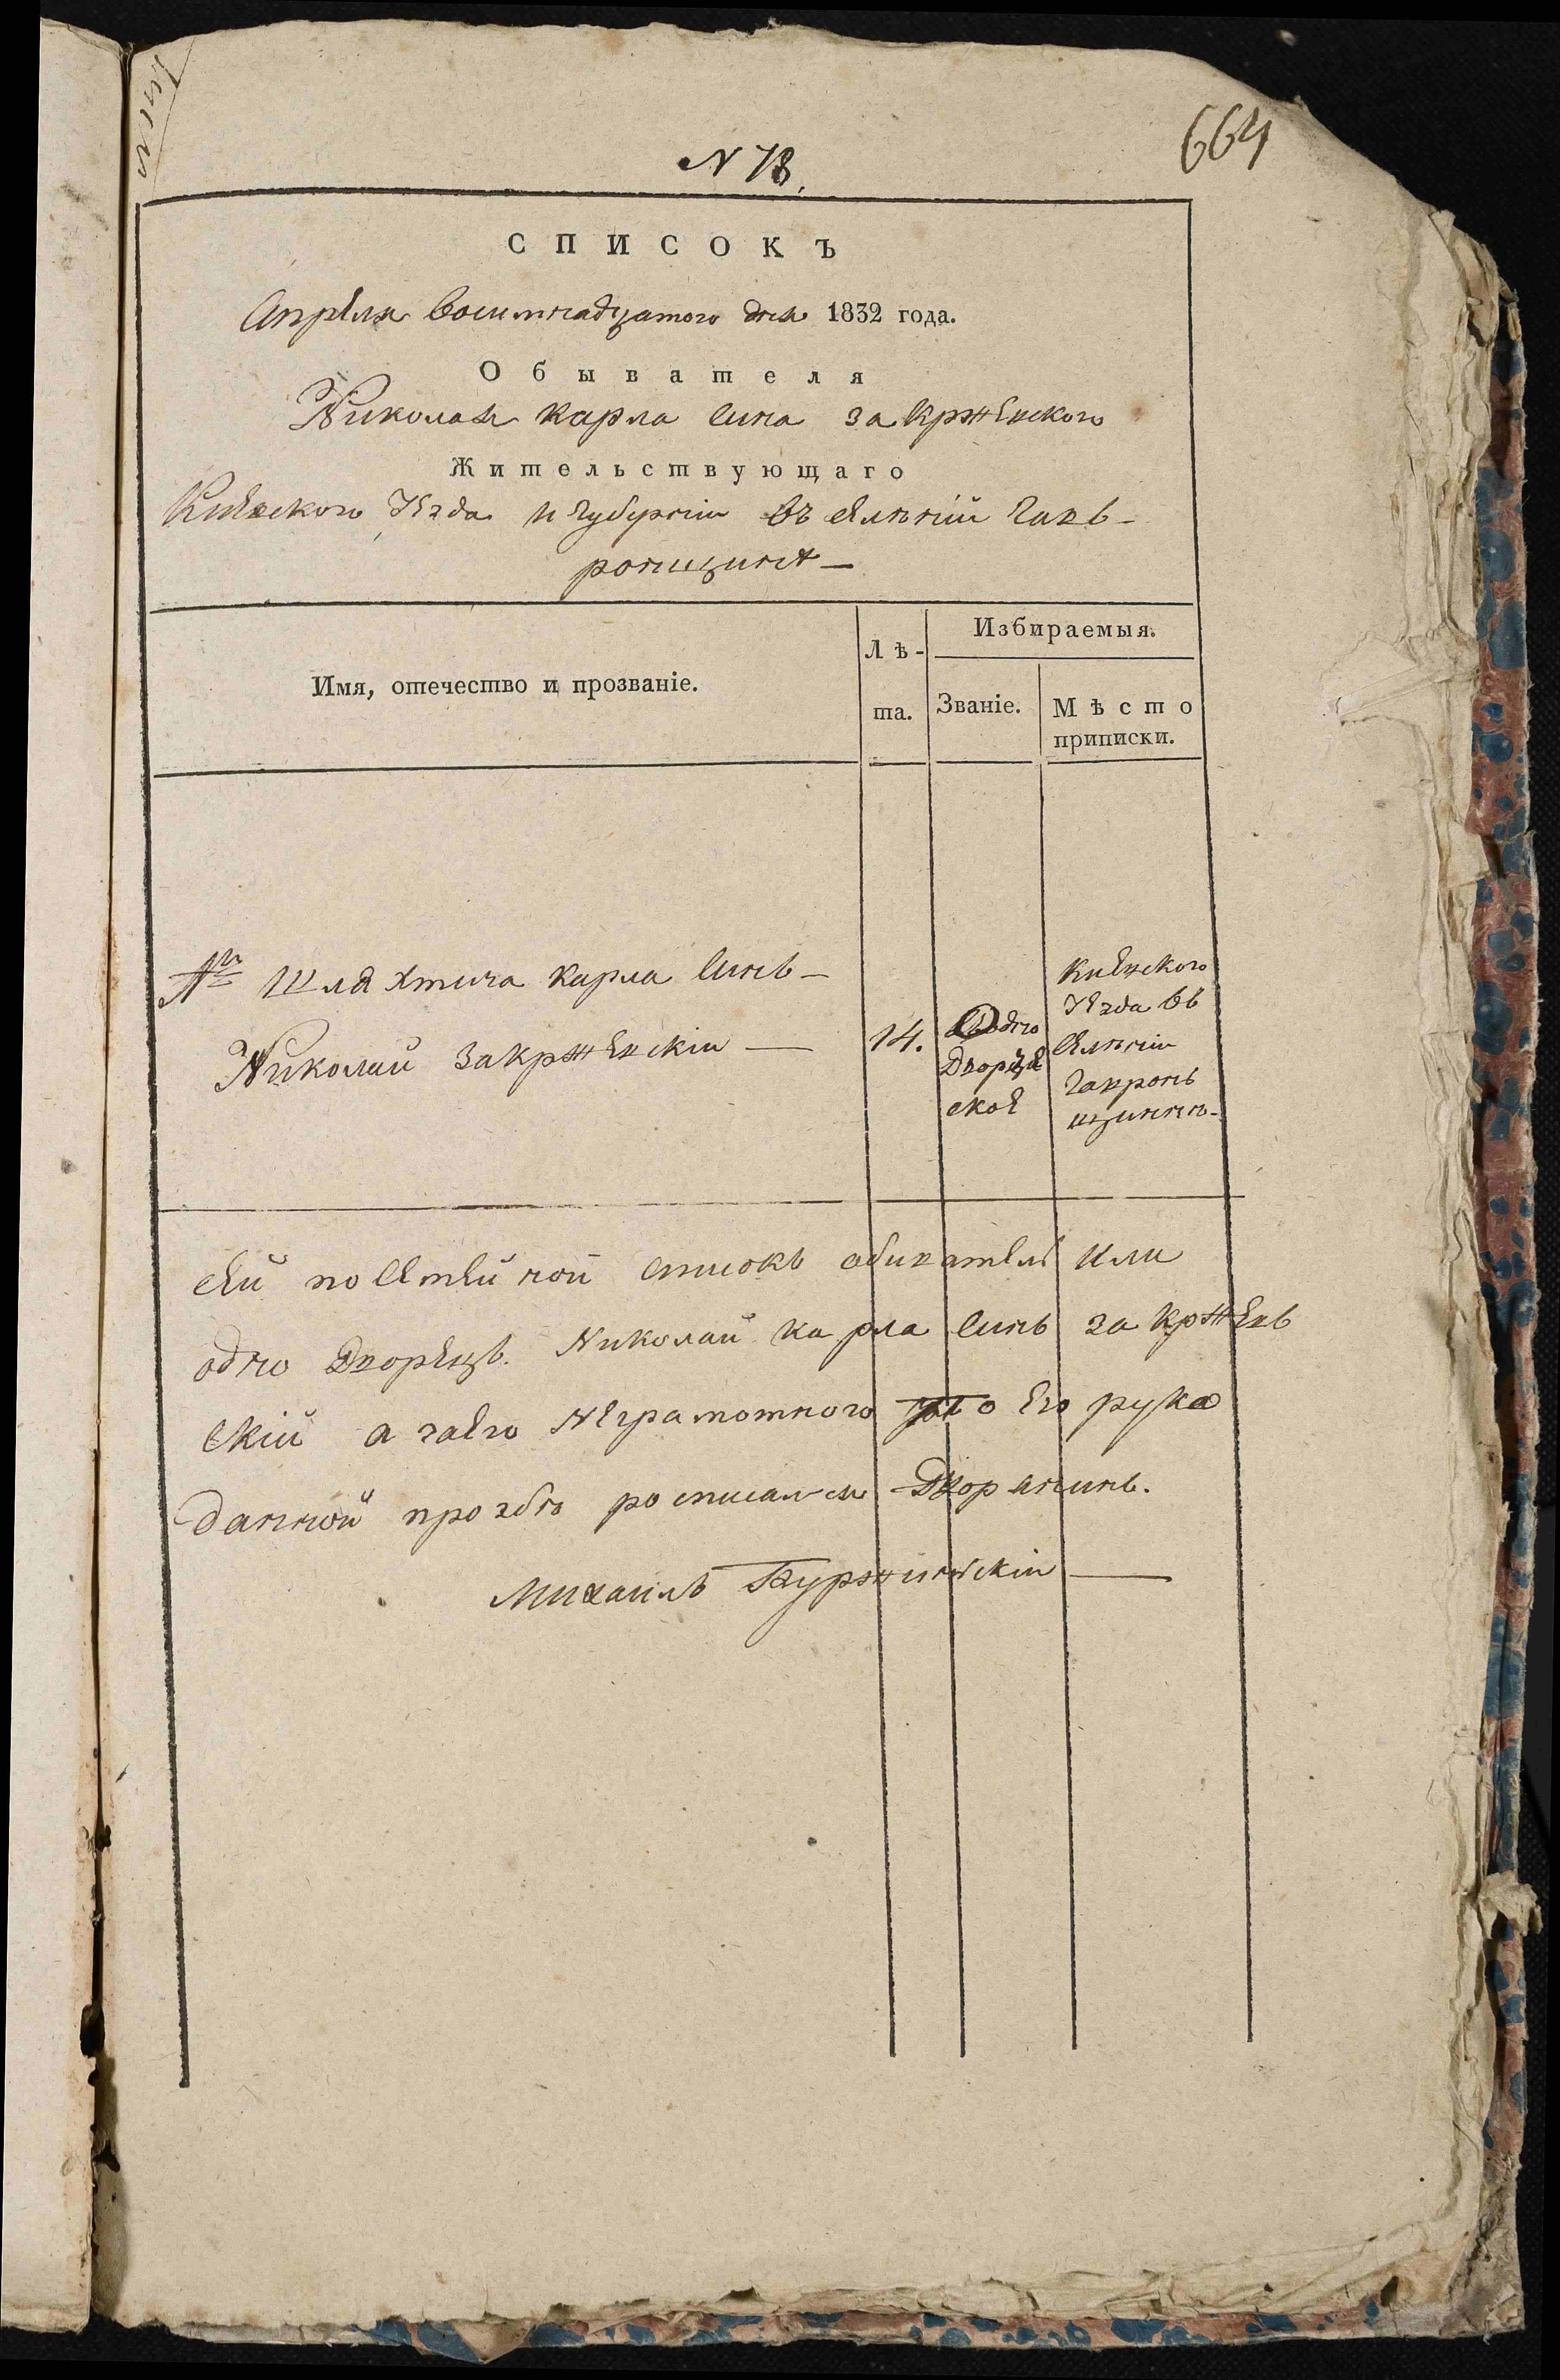 664
N 73.
СПИСОКЪ
Апреля восимнадцатого дня 1832 года.
Обывателя
Николая Карла Сина Закржевского
Жительствующаго
Киевского Уезда и Губернiи въ селенiй Гавъ-
ронщине—
Имя, отечество и прозванiе.
Лѣ-
та.
Избираемыя.
Званiе.
Мѣсто
приписки.
Шляхтича Карла Синъ—
Николай Закржевскiи —
14.
Одно
Дворце
ское
Киевского
Уезда въ
селенiи
Гавронъ
щиннъ-
сей посемейной списокъ обиватель или
одно Дворецъ. Николай Карла Синъ Закржевъ
скiй а заего неграмотного по его рука
данной прозбы росписался Дворянинъ.
Михаилъ Буржинскiи —